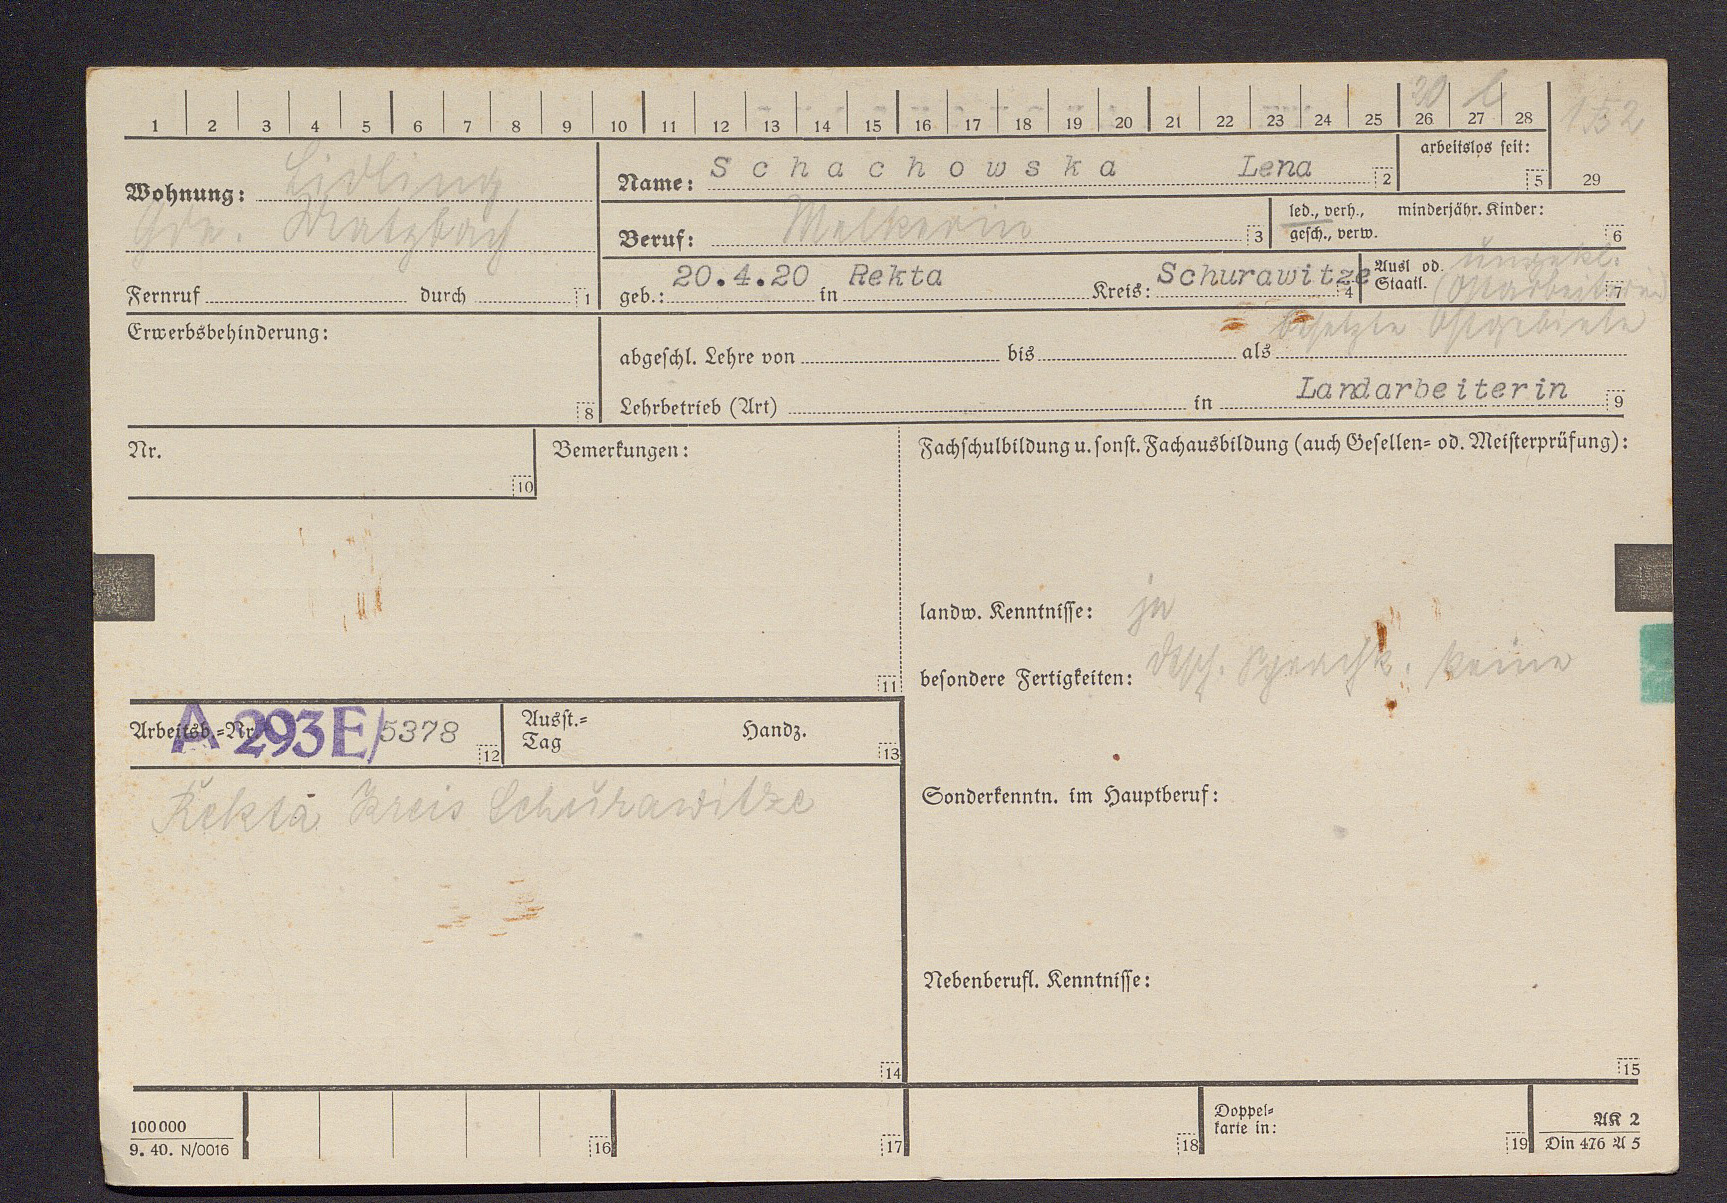 20 L
1 2 3 4 5 6 7 8 9 10 11 12 13 14 15 16 17 18 19 20 21 22 23 24 25 26 27 28
152
Wohnung: Lidling
Gde. Matzbach
Fernruf durch 1
Name: Schachowska Lena 2
arbeitslos seit:
5 29
Beruf: Melkerin 3
led., verh., minderjähr. Kinder:
gesch., verw. 6
geb.: 20.4.20 in Rekta Kreis: Schurawitze 4
Ausl. od. ungekl.
Staatl. (Ostarbeiterin) 7
besetzte Ostgebiete
Erwerbsbehinderung:
8
abgeschl. Lehre von bis als
Lehrbetrieb (Art) in Landarbeiterin 9
Nr.
10
Bemerkungen:
11
Fachschulbildung u. sonst. Fachausbildung (auch Gesellen- od. Meisterprüfung):
landw. Kenntnisse: ja
besondere Fertigkeiten: dtsch. Sprachk. keine
Arbeitsb.-Nr. A 293 E/5378 12
Ausst.-
Tag Handz. 13
Rekta Kreis Schurawitze
14
Sonderkenntn. im Hauptberuf:
Nebenberufl. Kenntnisse:
15
100 000
9. 40. N/0016
16 17 18
Doppel-
karte in:
19
AK 2
Din 476 A 5